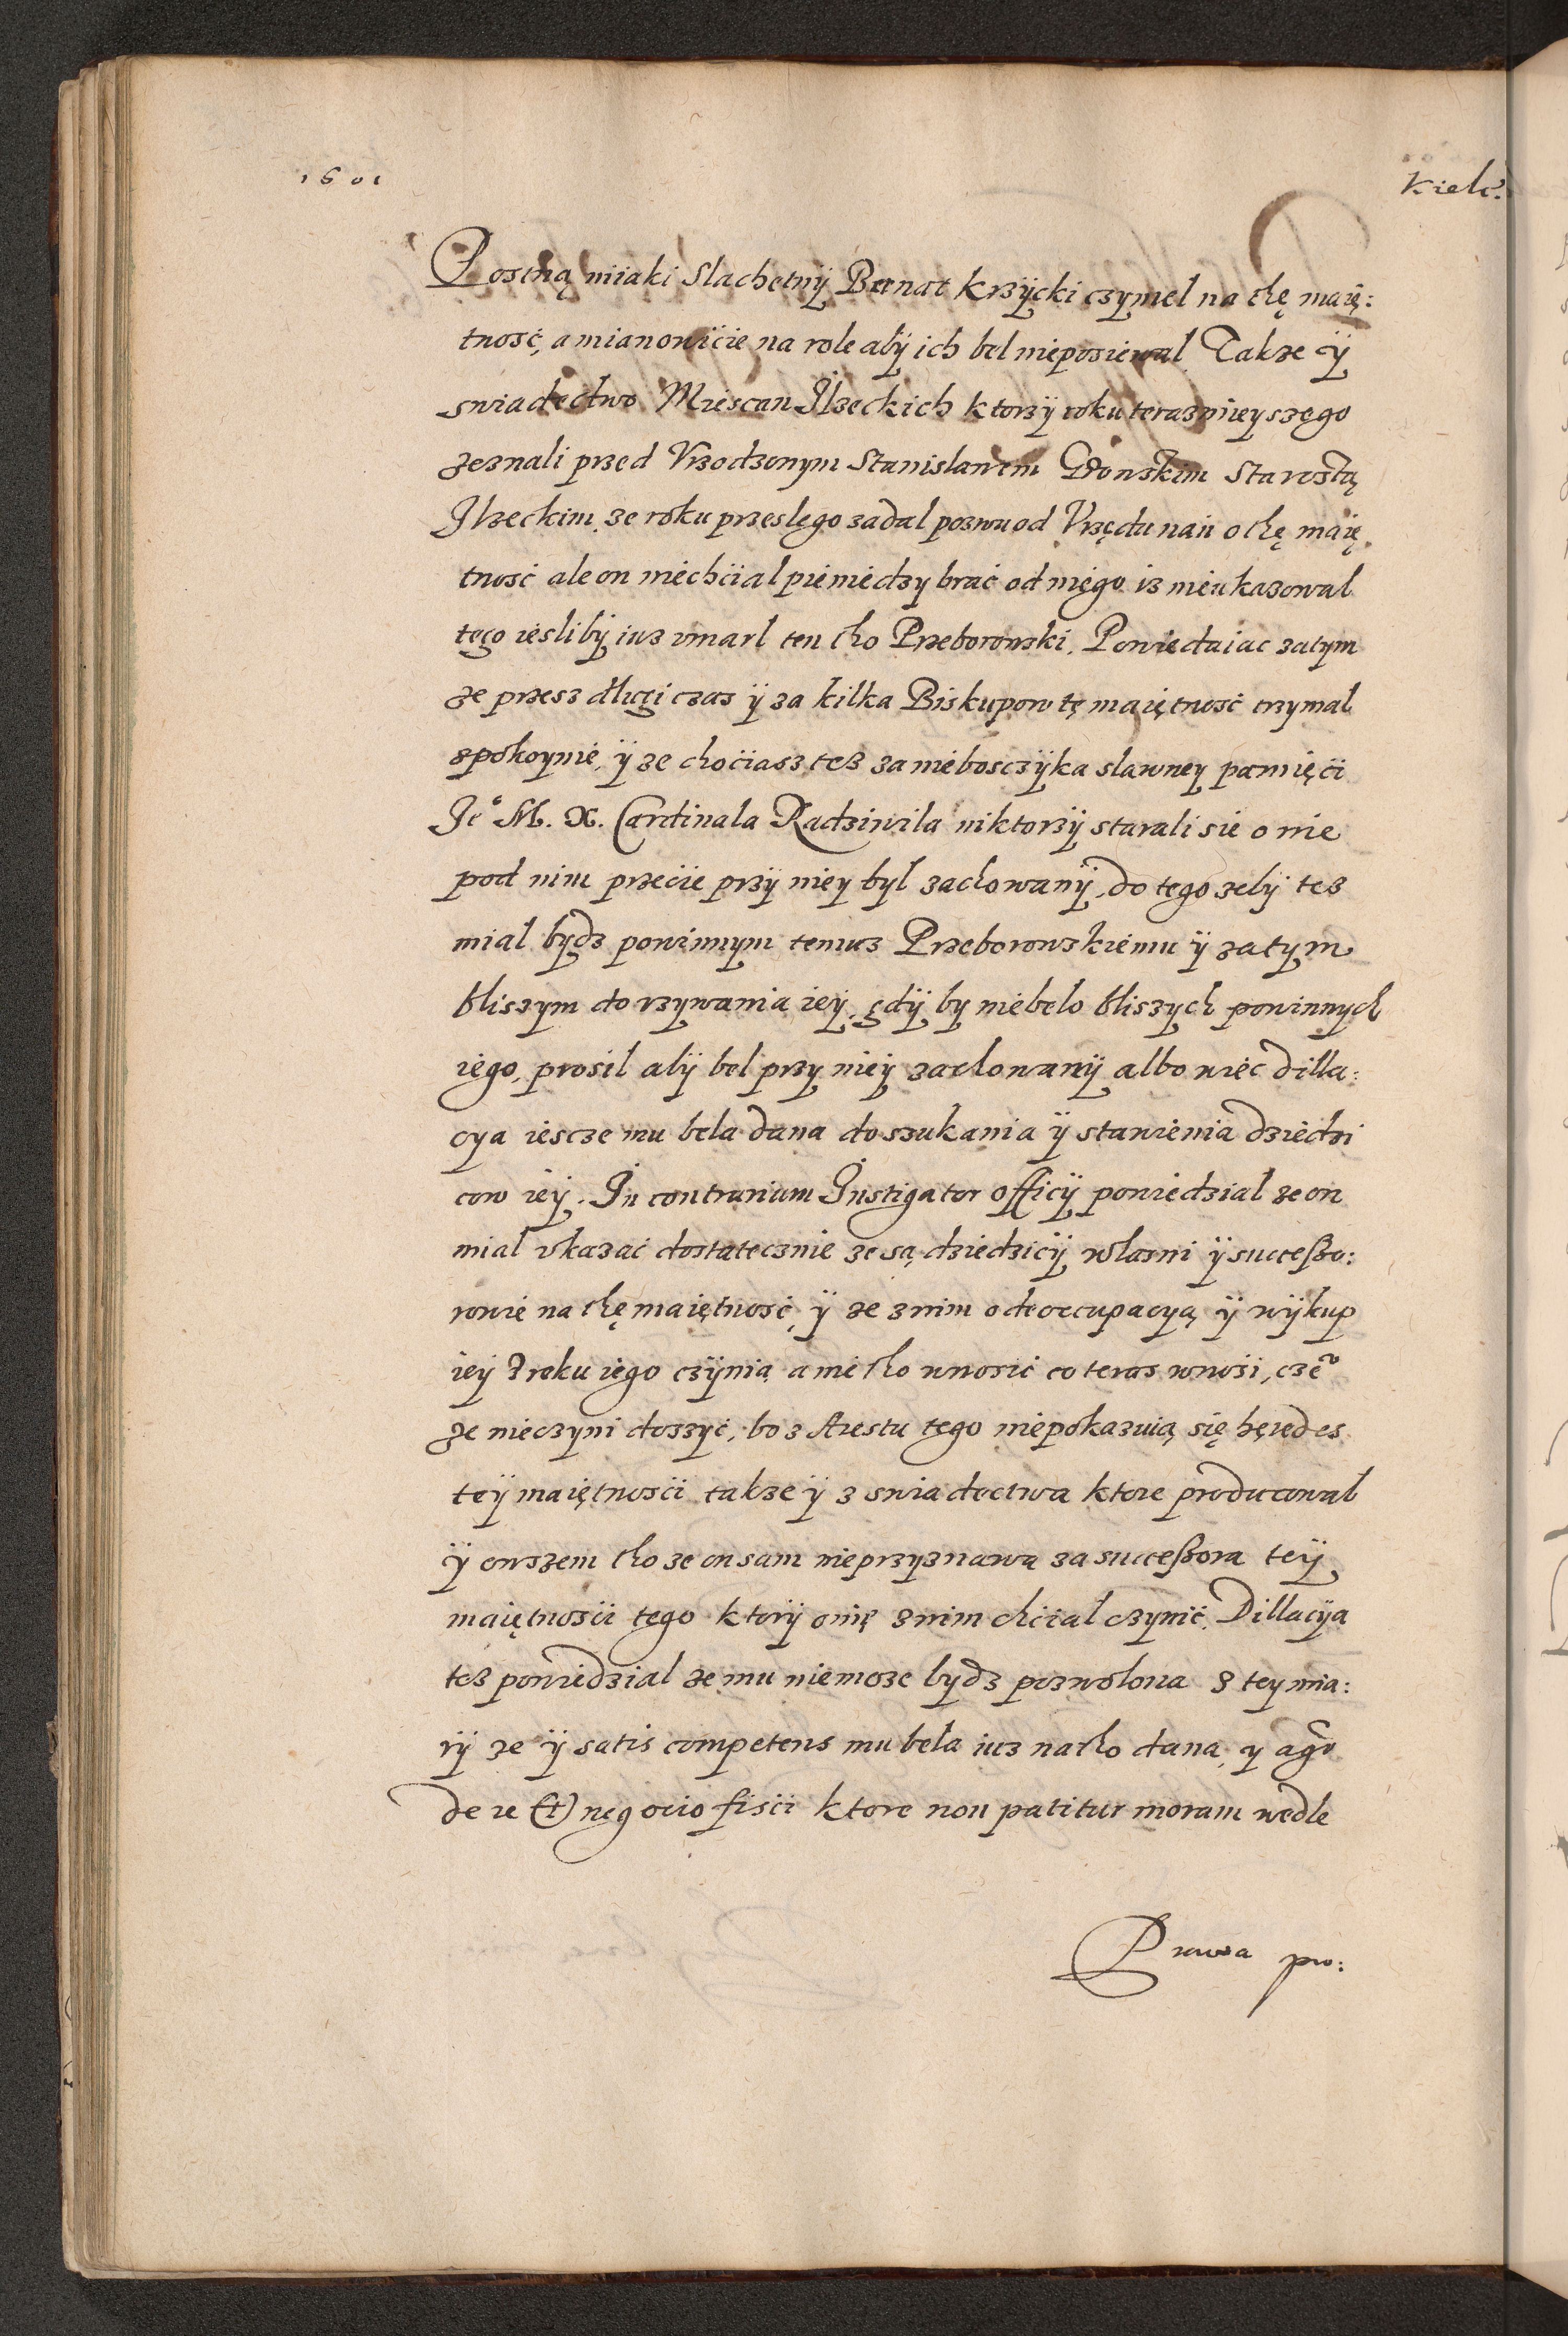 1601
Kielc.
Postną niiaki Slachetnÿ Bernat Krzÿcki czymel na thę maię:
tnosć, a mianowićie na role abÿ ich bel nieposiewal Takze ÿ
swiadectwo Miescan Ilzeckich ktorzÿ roku terazniieyszego
zeznali przed Vrzodzonym Stanislawem Głonskim Starostą
Ilzeckim, ze roku przeslego zadal pozwu od Vrzędu nań o thę maię
tnosć ale on niechćial pieniedzy brać od niego iz nieukazowal
tego iesli bÿ iuz vmarl ten tho Przeborowski. Powiedaiac zatym
ze przesz dlugi czas ÿ za kilka Biskupow tę maiętnosć trzymal
spokoynie, ÿ ze choćiasz tesz za niebosczÿka slawney pamięći
Je° M. X. Cardinala Radziwila niktorzÿ starali sie o nie
pod nim przećie przÿ niey byl zachowanÿ, do tego zebÿ tesz
mial bydz powinnym temuz Przeborowskiemu ÿ zatym
bliszym do vzywania ieÿ, gdÿ by niebelo bliszych powinnych
iego, prosil abÿ bel przy nieÿ zachowanÿ albo wiec dilla:
cya iescze mu bela dana do szukania ÿ stawienia dziedzi
cow ieÿ. In contrarium Instigator officÿ powiedzial ze on
mial vkazać dostatecznie ze są dziedzicÿ wlasni ÿ succeßo:
rowie na thę maiętnosć, ÿ ze z nim o deoccupacyą ÿ wÿkup
ieÿ z reku iego czÿnią a nie tho wnosić co teras wnośi, cze°
ze nieczyni doszyć, bo z Arestu tego niepokazuią się hęredes
teÿ maiętnosći takze ÿ z swiadectwa ktore producowal
ÿ owszem tho ze on sam nieprzyznawa za succeßora teÿ
maiętnosći tego ktorÿ o nię z nim chćial czynić. Dillacÿa
tesz powiedzial ze mu niemoze bydz pozwolona z tey mia:
rÿ ze ÿ satis competens mu bela iuz na tho dana, y agr
de re (et) negocio fisci ktore non patitur moram wedle
Prawa po: